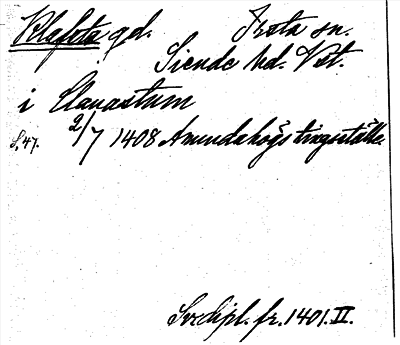 Klafsta gd. Irsta sn.
Siende hd. Vst.
i Clauastum
S. 47. 2/7 1408 Anundahögs tingsställe.
Sv. dipl. fr. 1401. II.